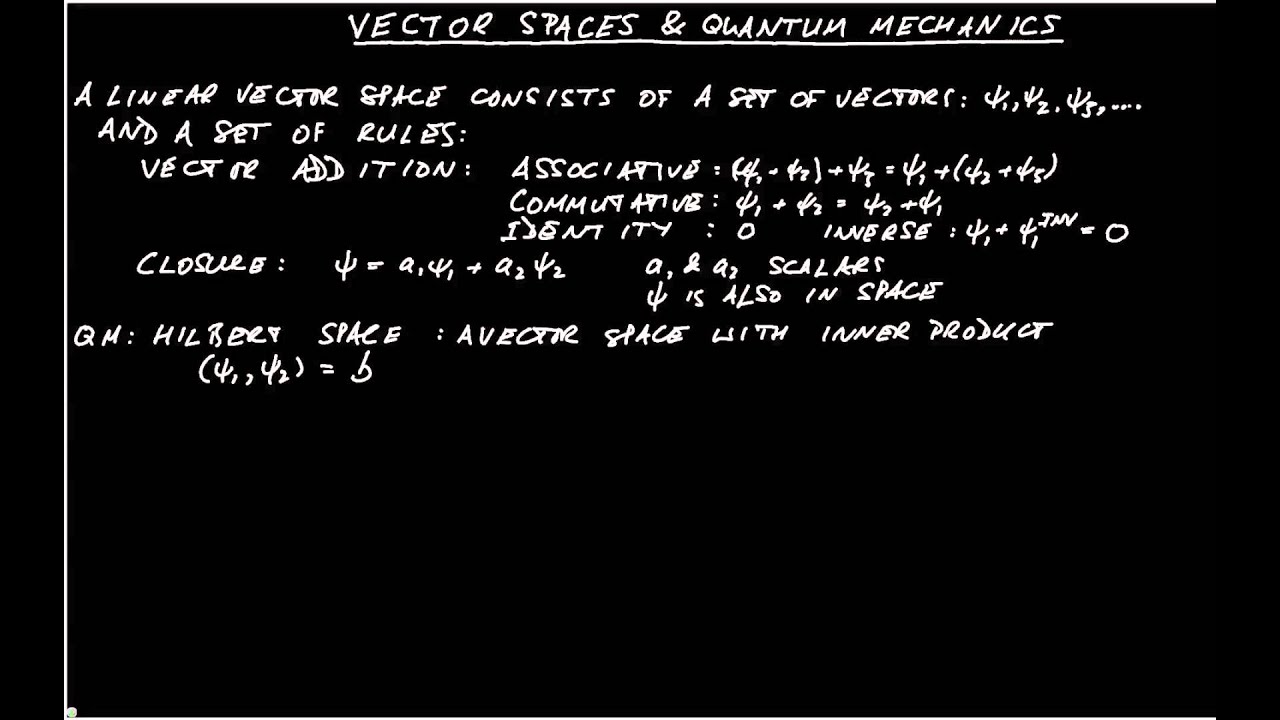 VECTOR SPACES & QUANTUM MECHANICS
A LINEAR VECTOR SPACE CONSISTS OF A SET OF VECTORS: ψ₁, ψ₂, ψ₃, ....
AND A SET OF RULES:
VECTOR ADDITION: ASSOCIATIVE: (ψ₁+ψ₂)+ψ₃ = ψ₁+(ψ₂+ψ₃)
COMMUTATIVE: ψ₁ + ψ₂ = ψ₂ + ψ₁
IDENTITY : 0 INVERSE: ψ₁ + ψ₁ᴵᴺⱽ = 0
CLOSURE: ψ = a₁ψ₁ + a₂ψ₂ a₁ & a₂ SCALARS
ψ IS ALSO IN SPACE
QM: HILBERT SPACE : A VECTOR SPACE WITH INNER PRODUCT
(ψ₁, ψ₂) = b